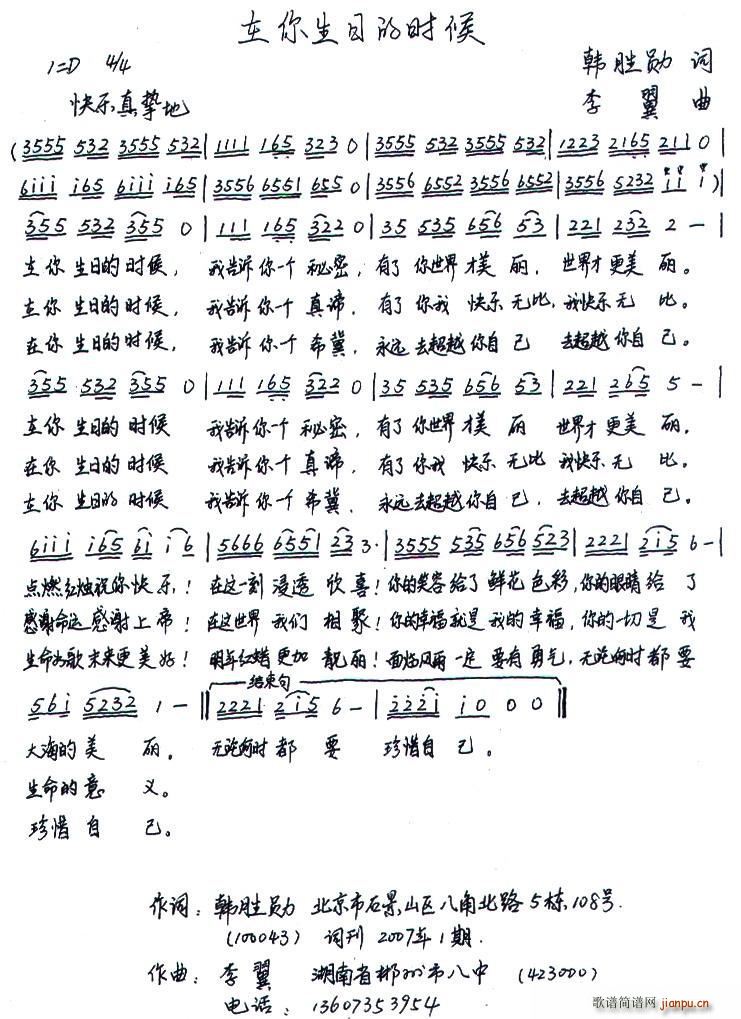 在你生日的时候
1=D 4/4
韩胜勋 词
快乐、真挚地
李翼 曲
(3555 532 3555 532 | 1111 165 323 0 | 3555 532 3555 532 | 1223 2165 211 0 |
6iii i65 6iii i65 | 3556 6551 655 0 | 3556 6552 3556 6552 | 3556 5232 i i i ) |
355 532 355 0 | 111 165 322 0 | 35 535 656 53 | 221 232 2 — |
在你 生日的 时候， 我告诉 你一个 秘密，有了 你世界 才美 丽，世界才 更美 丽。
在你 生日的 时候， 我告诉 你一个 真谛，有了 你我 快乐 无比，我快乐 无 比。
在你 生日的 时候， 我告诉 你一个 希冀，永远 去超越 你自 己 去超越 你自 己。
355 532 355 0 | 111 165 322 0 | 35 535 656 53 | 221 265 5 — |
在你 生日的 时候 我告诉 你一个 秘密，有了 你世界 才美 丽 世界才 更美 丽。
在你 生日的 时候 我告诉 你一个 真谛，有了 你我 快乐 无比 我快乐 无 比。
在你 生日的 时候 我告诉 你一个 希冀，永远 去超越 你自 己，去超越 你自 己。
6iii i65 6i i 6 | 5666 6551 23 3· | 3555 535 656 523 | 2221 2i5 6 — |
点燃红烛祝你 快 乐！在这一刻 浸透 欣喜！你的笑容 给了 鲜花 色彩，你的眼睛 给 了
感谢命运 感谢 上 帝！在这世界 我们 相聚！你的幸福 就是 我的 幸福，你的一切 是 我
生命如歌 未来更 美 好！明年红蜡 更加 靓丽！面临风雨 一定 要有 勇气，无论何时 都 要
结束句
56i 5232 1 — || 2221 2i5 6 — | 2221 i 0 0 0 ||
大海的 美 丽。 无论何时 都 要 珍惜自 己。
生命的 意 义。
珍惜 自 己。
作词：韩胜勋 北京市石景山区八角北路5栋、108号.
(100043) 词刊 2007年1期.
作曲：李翼 湖南省郴州市八中 (423000)
电话：13607353954
歌谱简谱网 jianpu.cn